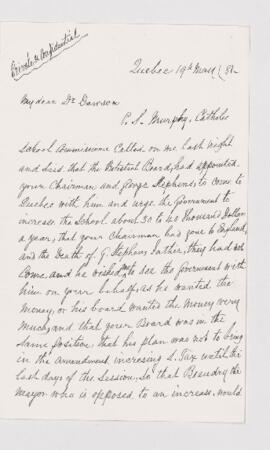 Private & Confidential
Quebec 19th
My dear Dr Dawson
P. S. Murphy, Catholic
School Commissioner Called on me last night
and said that the Protestant Board, had appointed
your Chairman and George Stephens, to come to
Quebec with him and urge the Government to
increase the School about 30 to 40 Thousand Dollars
a year, that your Chairman had gone to England,
and the Death of G. Stephens father, they had not
Come, and he wished me to see the Government with
him on your behalf as he wanted the
money, or his board wanted the money very
much, and that your Board was in the
same position, that his plan was not to bring
in the Amendment increasing S. Tax until the
last days of the Session, so that Beaudry the
Mayor who is opposed to an increase would